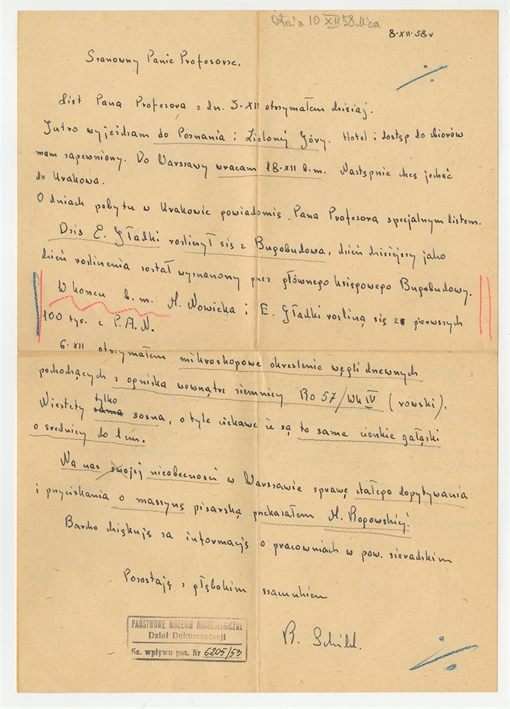 dnia 10 XII 58
8·XII·58 r
Szanowny Panie Profesorze.
List Pana Profesora z dn. 5·XII otrzymałem dzisiaj.
Jutro wyjeżdżam do Poznania i Zielonej Góry. Hotel i dostęp do zbiorów
mam zapewniony. Do Warszawy wracam 18·XII b.m. Następnie chcę jechać
do Krakowa.
O dniach pobytu w Krakowie powiadomię Pana Profesora specjalnym listem.
Dziś E. Gładki rozliczył się z Bugobudową, dzień dzisiejszy jako
dzień rozliczenia został wyznaczony przez głównego księgowego Bugobudowy.
W końcu b.m. M. Nowicka i E. Gładki rozliczą się z pierwszych
100 tys. z P.A.N.
6·XII otrzymałem mikroskopowe określenie węgli drzewnych
pochodzących z ogniska wewnątrz ziemnicy Bo 57/Wk IV (rowski).
Niestety tylko sosna, o tyle ciekawe że są to same cienkie gałązki
o średnicy do 1 cm.
Na czas swojej nieobecności w Warszawie sprawę stałego dopytywania
i przyciskania o maszynę pisarską przekazałem M. Bopowskiej.
Bardzo dziękuję za informację o pracowniach w pow. sieradzkim
Pozostaję z głębokim szacunkiem
R. Schild.
PAŃSTWOWE MUZEUM ARCHEOLOGICZNE
Dział Dokumentacji
Ks. wpływu poz. Nr 6205/53